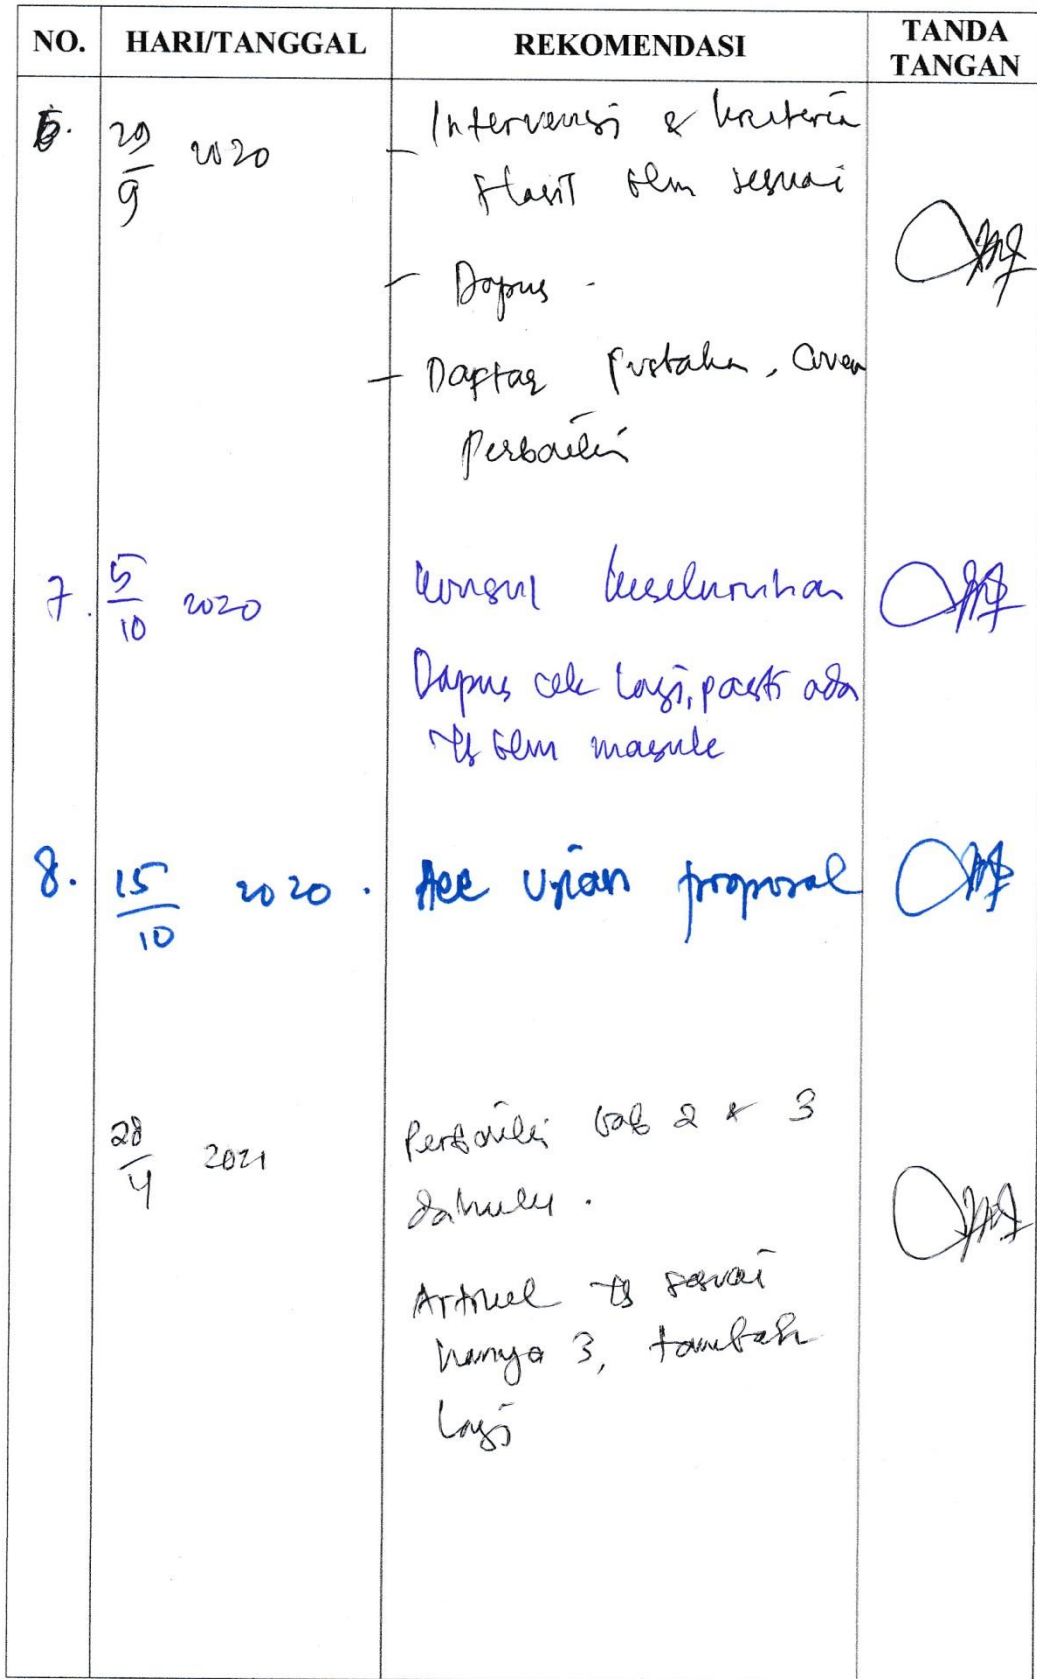 NO. HARI/TANGGAL REKOMENDASI TANDA TANGAN
6. 29/9 2020 - Intervensi & kriteria
Hasil blm sesuai
- Dapus.
- Daftar Pustaka,
Perbaiki
7. 5/10 2020 Konsul keseluruhan
Dapus cek lagi, pasti ada
yg blm masuk
8. 15/10 2020. Acc Ujian proposal
28/4 2021 Perbaiki bab 2 & 3
dahulu.
Artikel yg sesuai
hanya 3, tambah
lagi